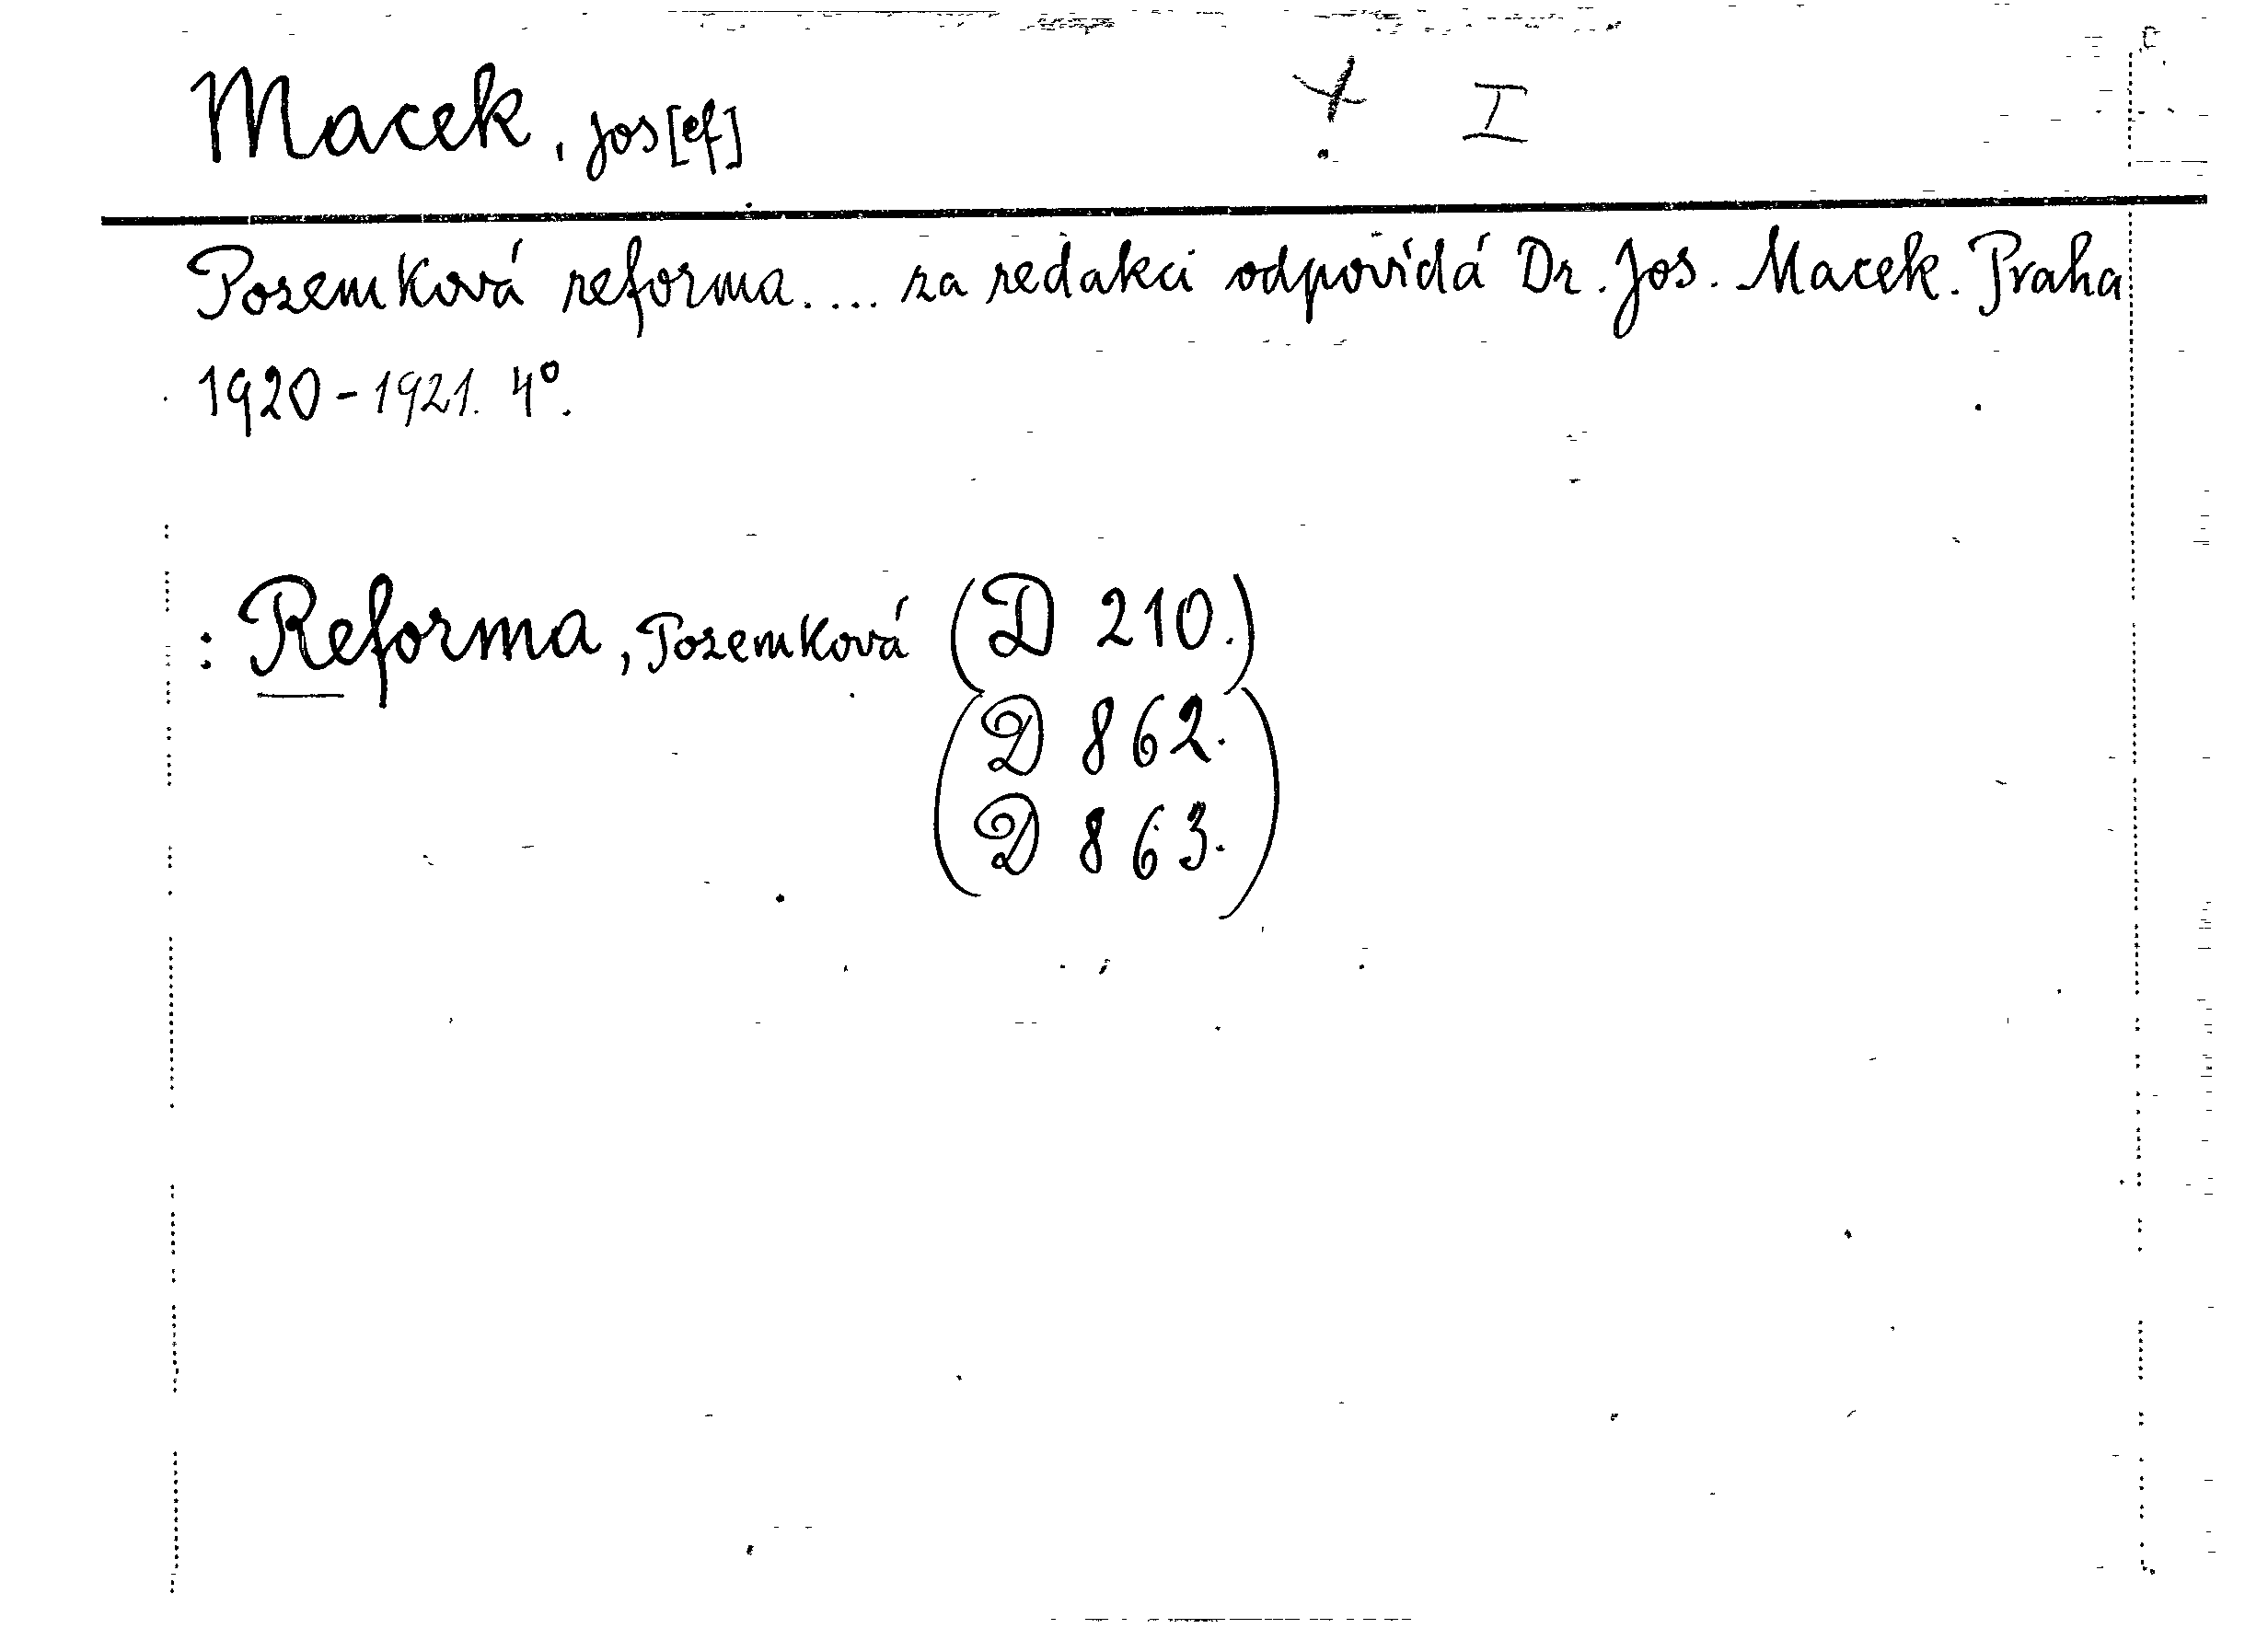 Macek, Jos[ef] + I
Pozemková reforma.... za redakci odpovídá Dr. Jos. Macek. Praha
1920-1921. 4°.
: Reforma, Pozemková (D 210.)
(D 862.
D 863.)